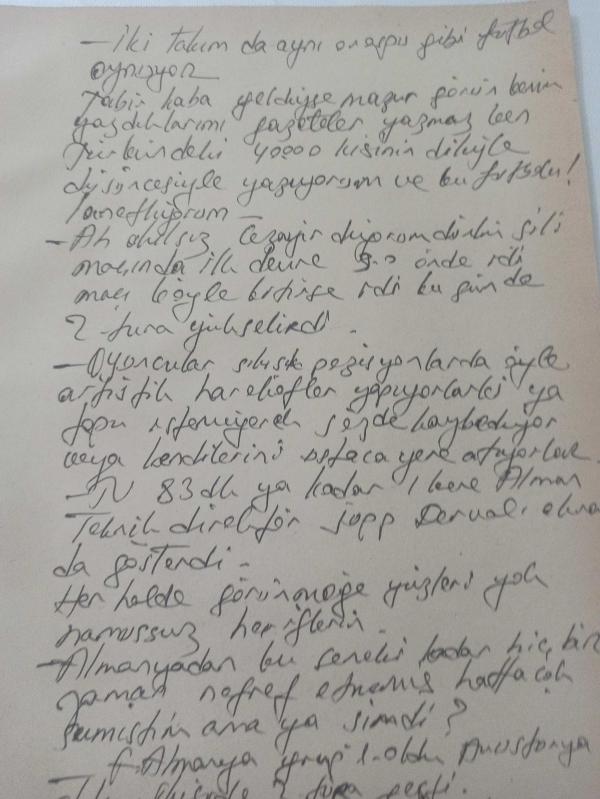 — İki takım da aynı orospu gibi futbol
oynuyor
Tabir kaba geldiyse mazur görün benim
yazdıklarımı gazeteler yazmaz ben
Türbündeki 40000 kişinin diliyle
düşüncesiyle yazıyorum ve bu futbolu!
lanetliyorum —
— Ah akılsız Cezayir diyorum dünkü Şili
maçında ilk devre 3-0 önde idi
maçı böyle bitirse idi bu günde
2. tura yükselirdi.
— Oyuncular sıkışık pozisyonlarda öyle
artistik hareketler yapıyorlarki ya
topu istemiyerek sözde kaybediyor
veya kendilerini ustaca yere atıyorlar.
— TV 83 dk ya kadar 1 kere Alman
Teknik direktör Jupp Dervalı ekran
da gösterdi —
Her halde görünmeğe yüzleri yok
namussuz heriflerin.
— Almanyadan bu seneki kadar hiç bir
zaman nefret etmemiş hatta çok
ama ya şimdi?
— F. Almanya grup 1. oldu Avusturya
2. tura geçti.